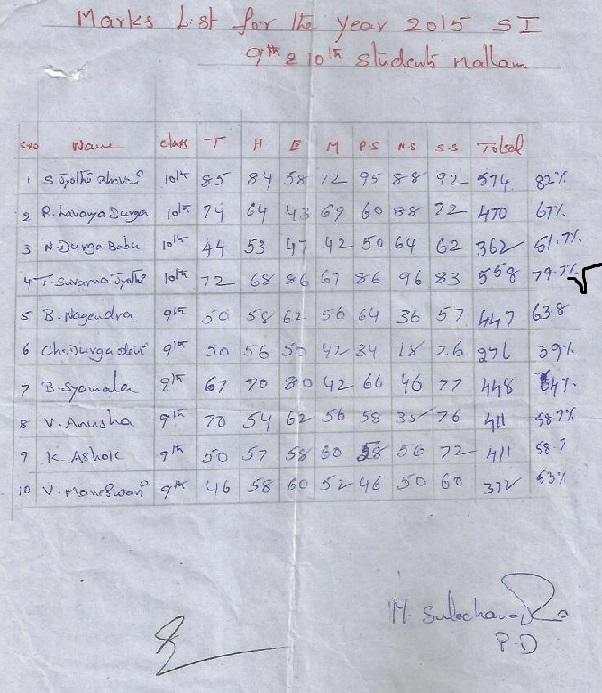 Marks List for the year 2015 S I
9th & 10th students Nallam
S.No Name class T H E M P.S N.S S.S Total
1 S Jyothi 10th 85 84 58 72 95 88 92 574 82%
2 R. Lavanya Durga 10th 74 64 43 69 60 88 72 470 67%
3 N. Durga Babu 10th 44 53 47 42 50 64 62 362 51.7%
4 T. Suvarna Jyothi 10th 72 68 86 67 86 96 83 558 79.7%
5 B. Nagendra 9th 50 58 62 56 64 36 57 447 63.8
6 Ch. Durga devi 9th 50 56 50 42 34 18 26 276 39%
7 B. Syamala 9th 67 70 80 42 66 46 77 448 64%
8 V. Anusha 9th 70 54 62 56 58 35 76 411 58.7%
9 K. Ashok 9th 50 57 58 60 58 56 72 411 58.7
10 V. Maneswari 9th 46 58 60 52 46 50 60 372 53%
M. Sulochana
P.D